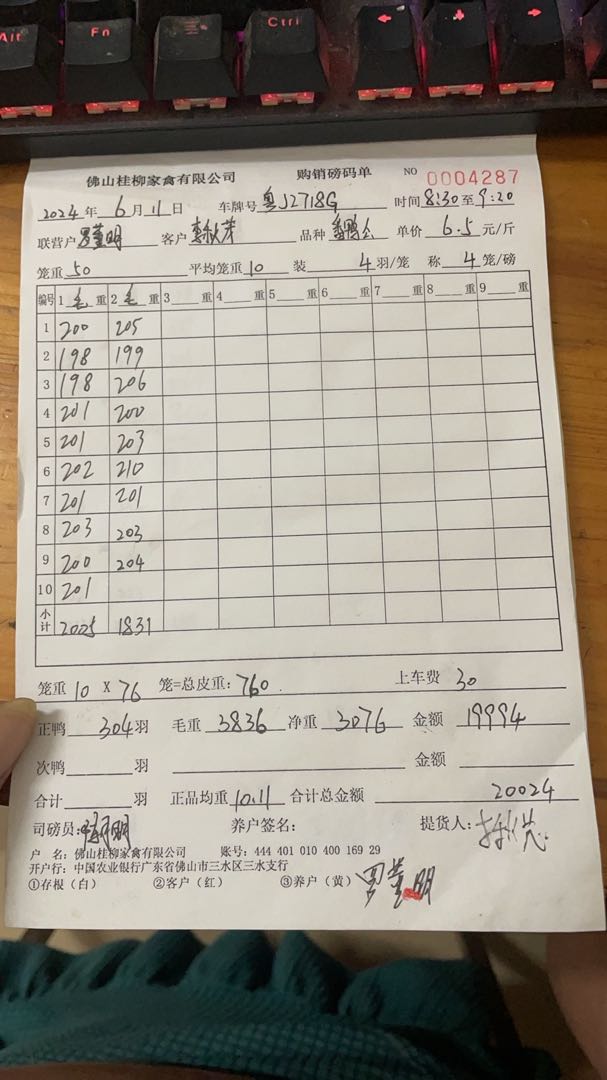 Alt Fn Ctrl
佛山桂柳家禽有限公司 购销磅码单 NO 0004287
2024年 6月 11日 车牌号 粤J2718G 时间 8:30 至 9:20
联营户 罗董明 客户 品种 番鸭公 单价 6.5 元/斤
笼重 50 平均笼重 10 装 4 羽/笼 称 4 笼/磅
编号 1 毛 重 2 毛 重 3 重 4 重 5 重 6 重 7 重 8 重 9 重
1 200 205
2 198 199
3 198 206
4 201 200
5 201 203
6 202 210
7 201 201
8 203 203
9 200 204
10 201
小计 2005 1831
笼重 10 X 76 笼=总皮重: 760 上车费 30
正鸭 304 羽 毛重 3836 净重 3076 金额 19994
次鸭 羽 金额
合计 羽 正品均重 10.11 合计总金额 20024
司磅员: 养户签名: 提货人:
户 名: 佛山桂柳家禽有限公司 账号: 444 401 010 400 169 29
开户行: 中国农业银行广东省佛山市三水区三水支行
①存根（白） ②客户（红） ③养户（黄） 罗董明